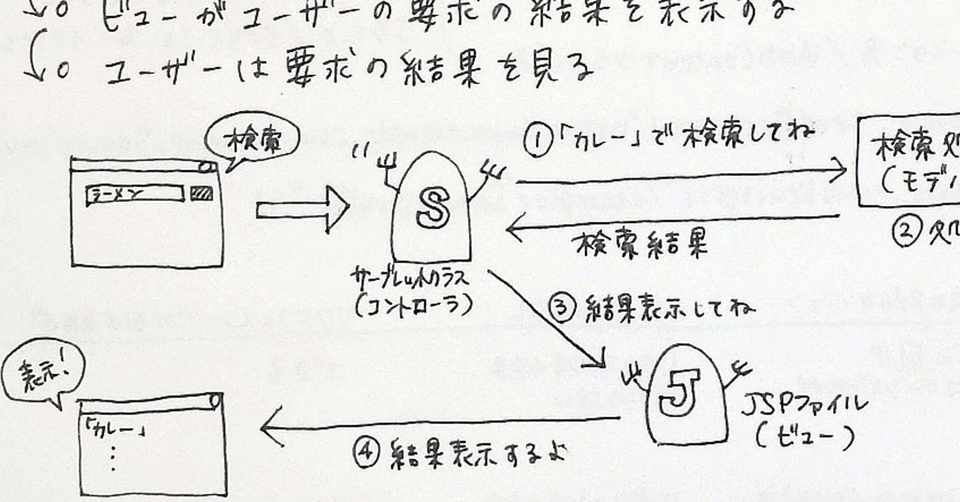 ↓○ ビューがユーザーの要求の結果を表示する
↓○ ユーザーは要求の結果を見る
検索
ラーメン
S
サーブレットクラス
(コントローラ)
①「カレー」で検索してね
検索処
(モデル
検索結果
②処
③結果表示してね
J
JSPファイル
(ビュー)
④結果表示するよ
表示!
「カレー」
⋮